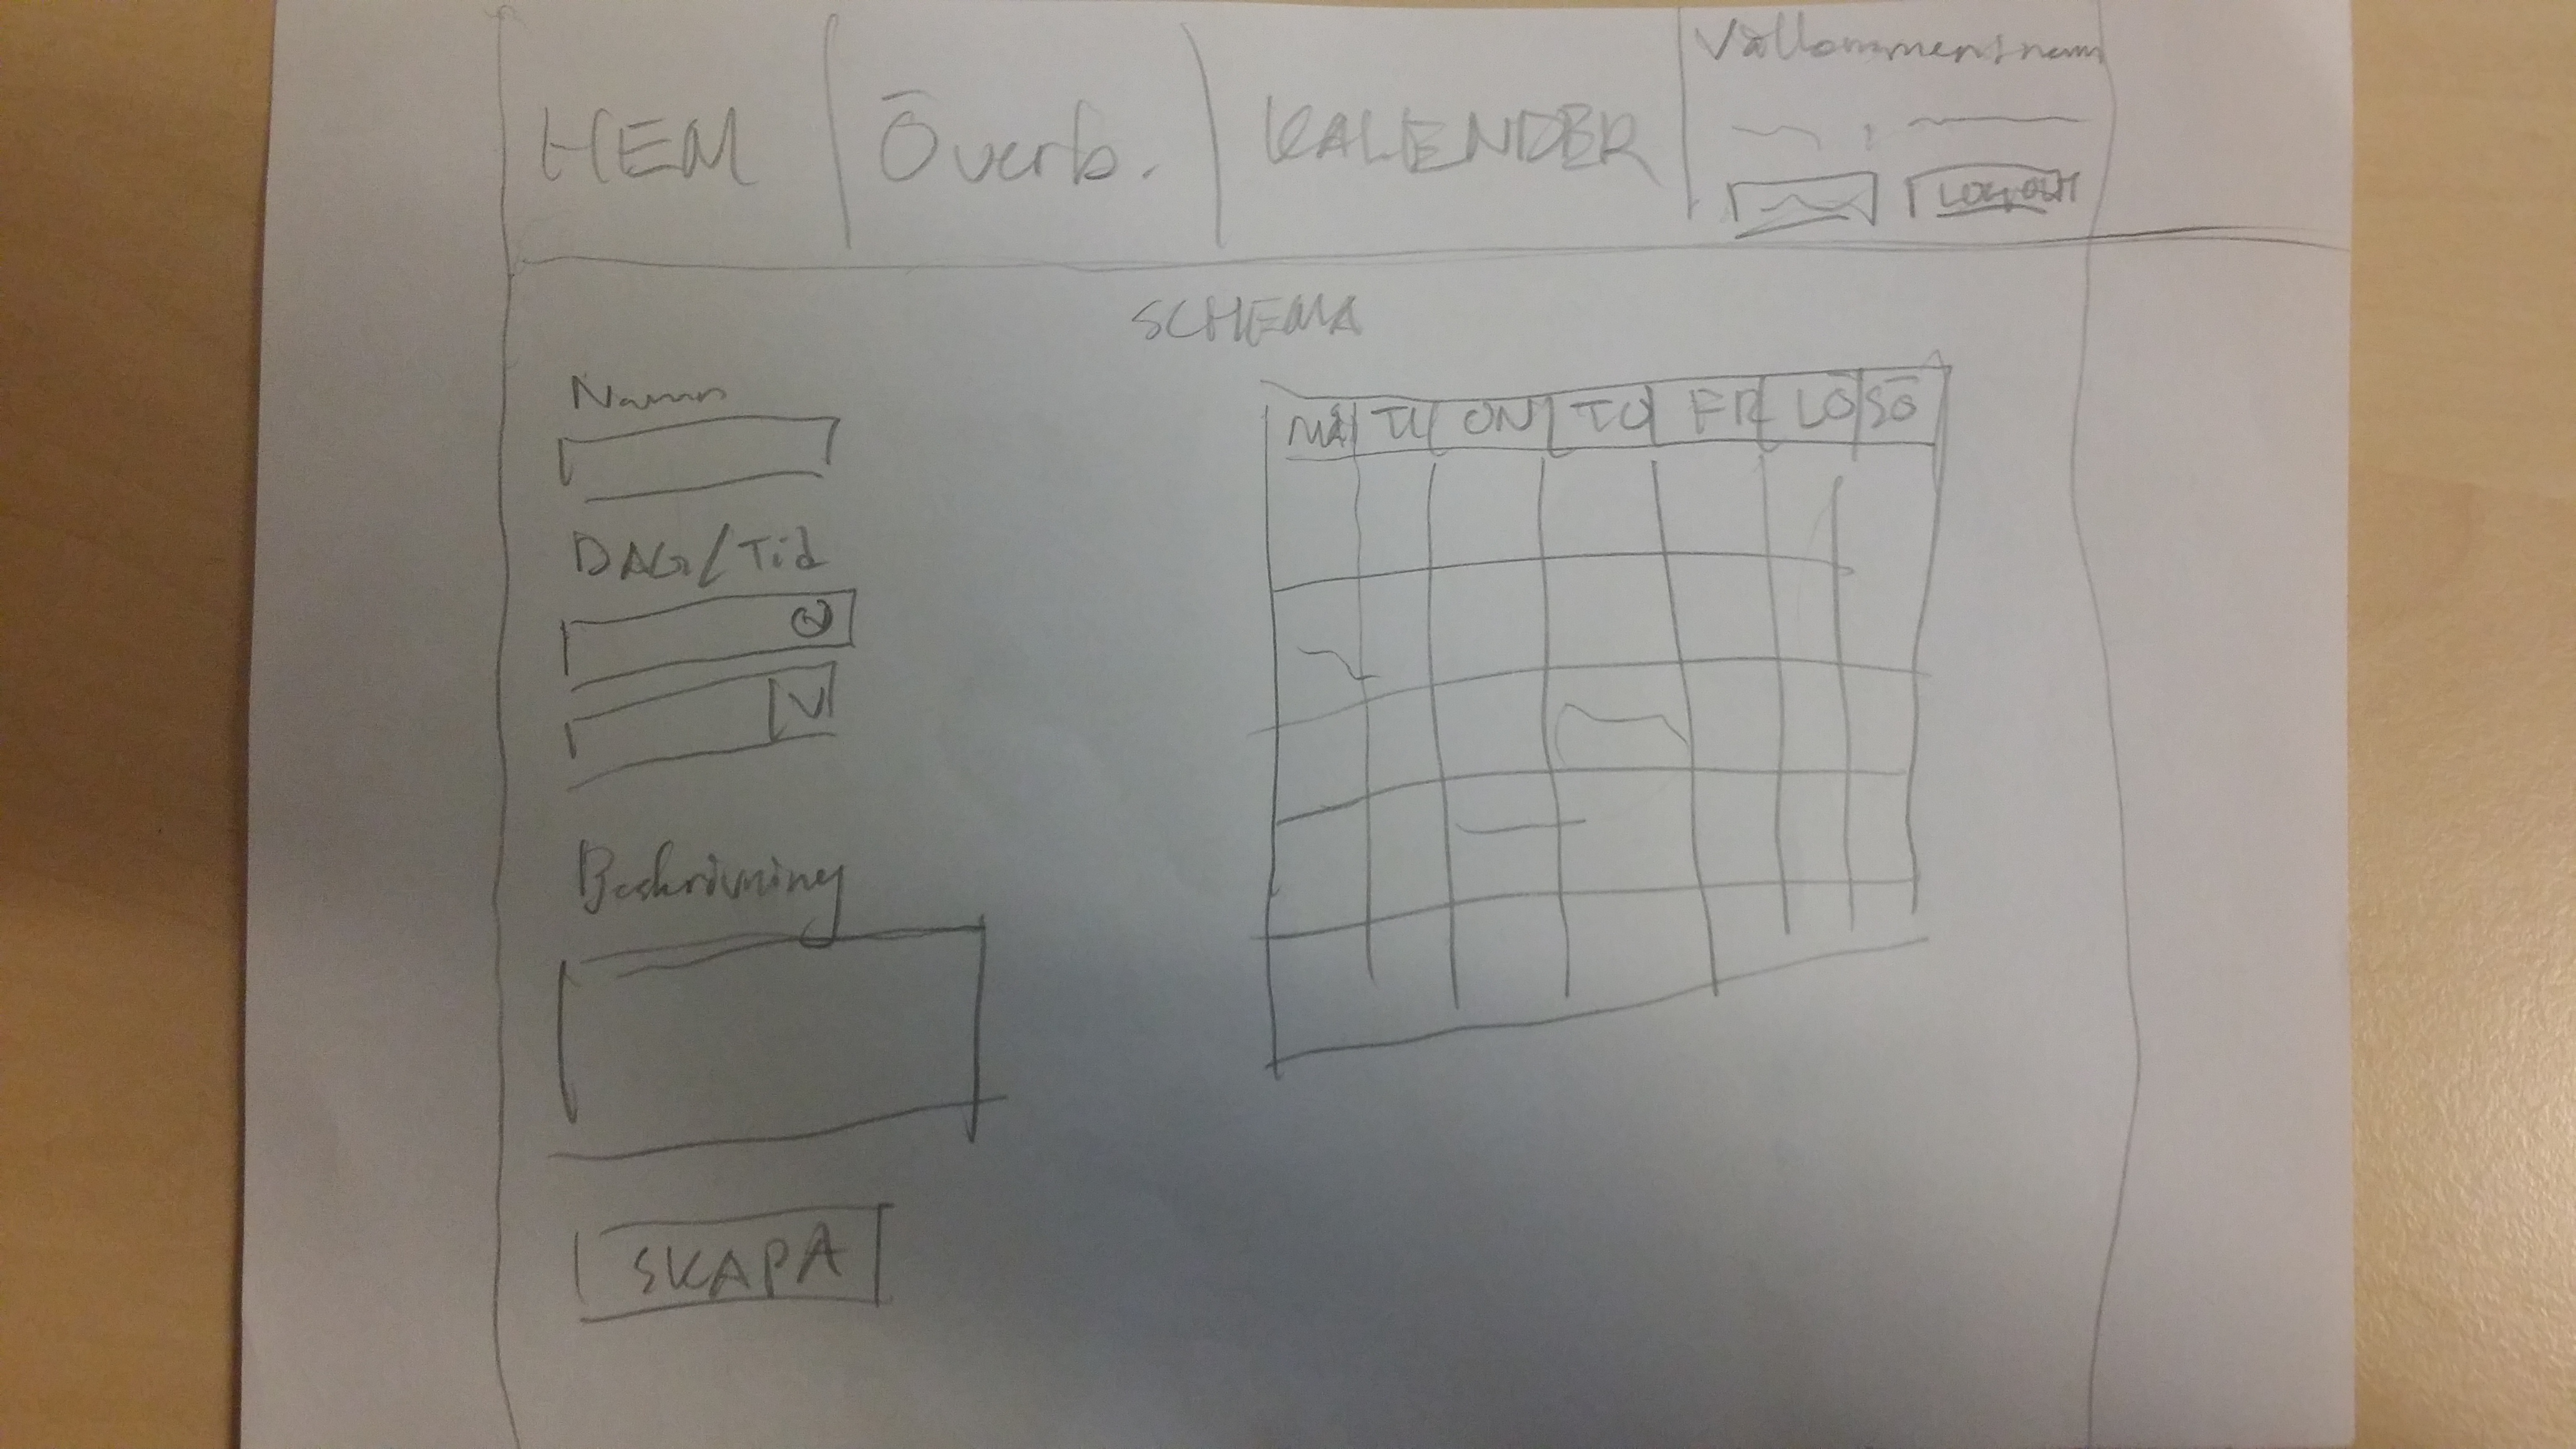 HEM Överb. KALENDER
LOGOUT
SCHEMA
Namn
DAG/Tid
Beskrivning
SKAPA
MÅ TI ON TO FR LÖ SÖ